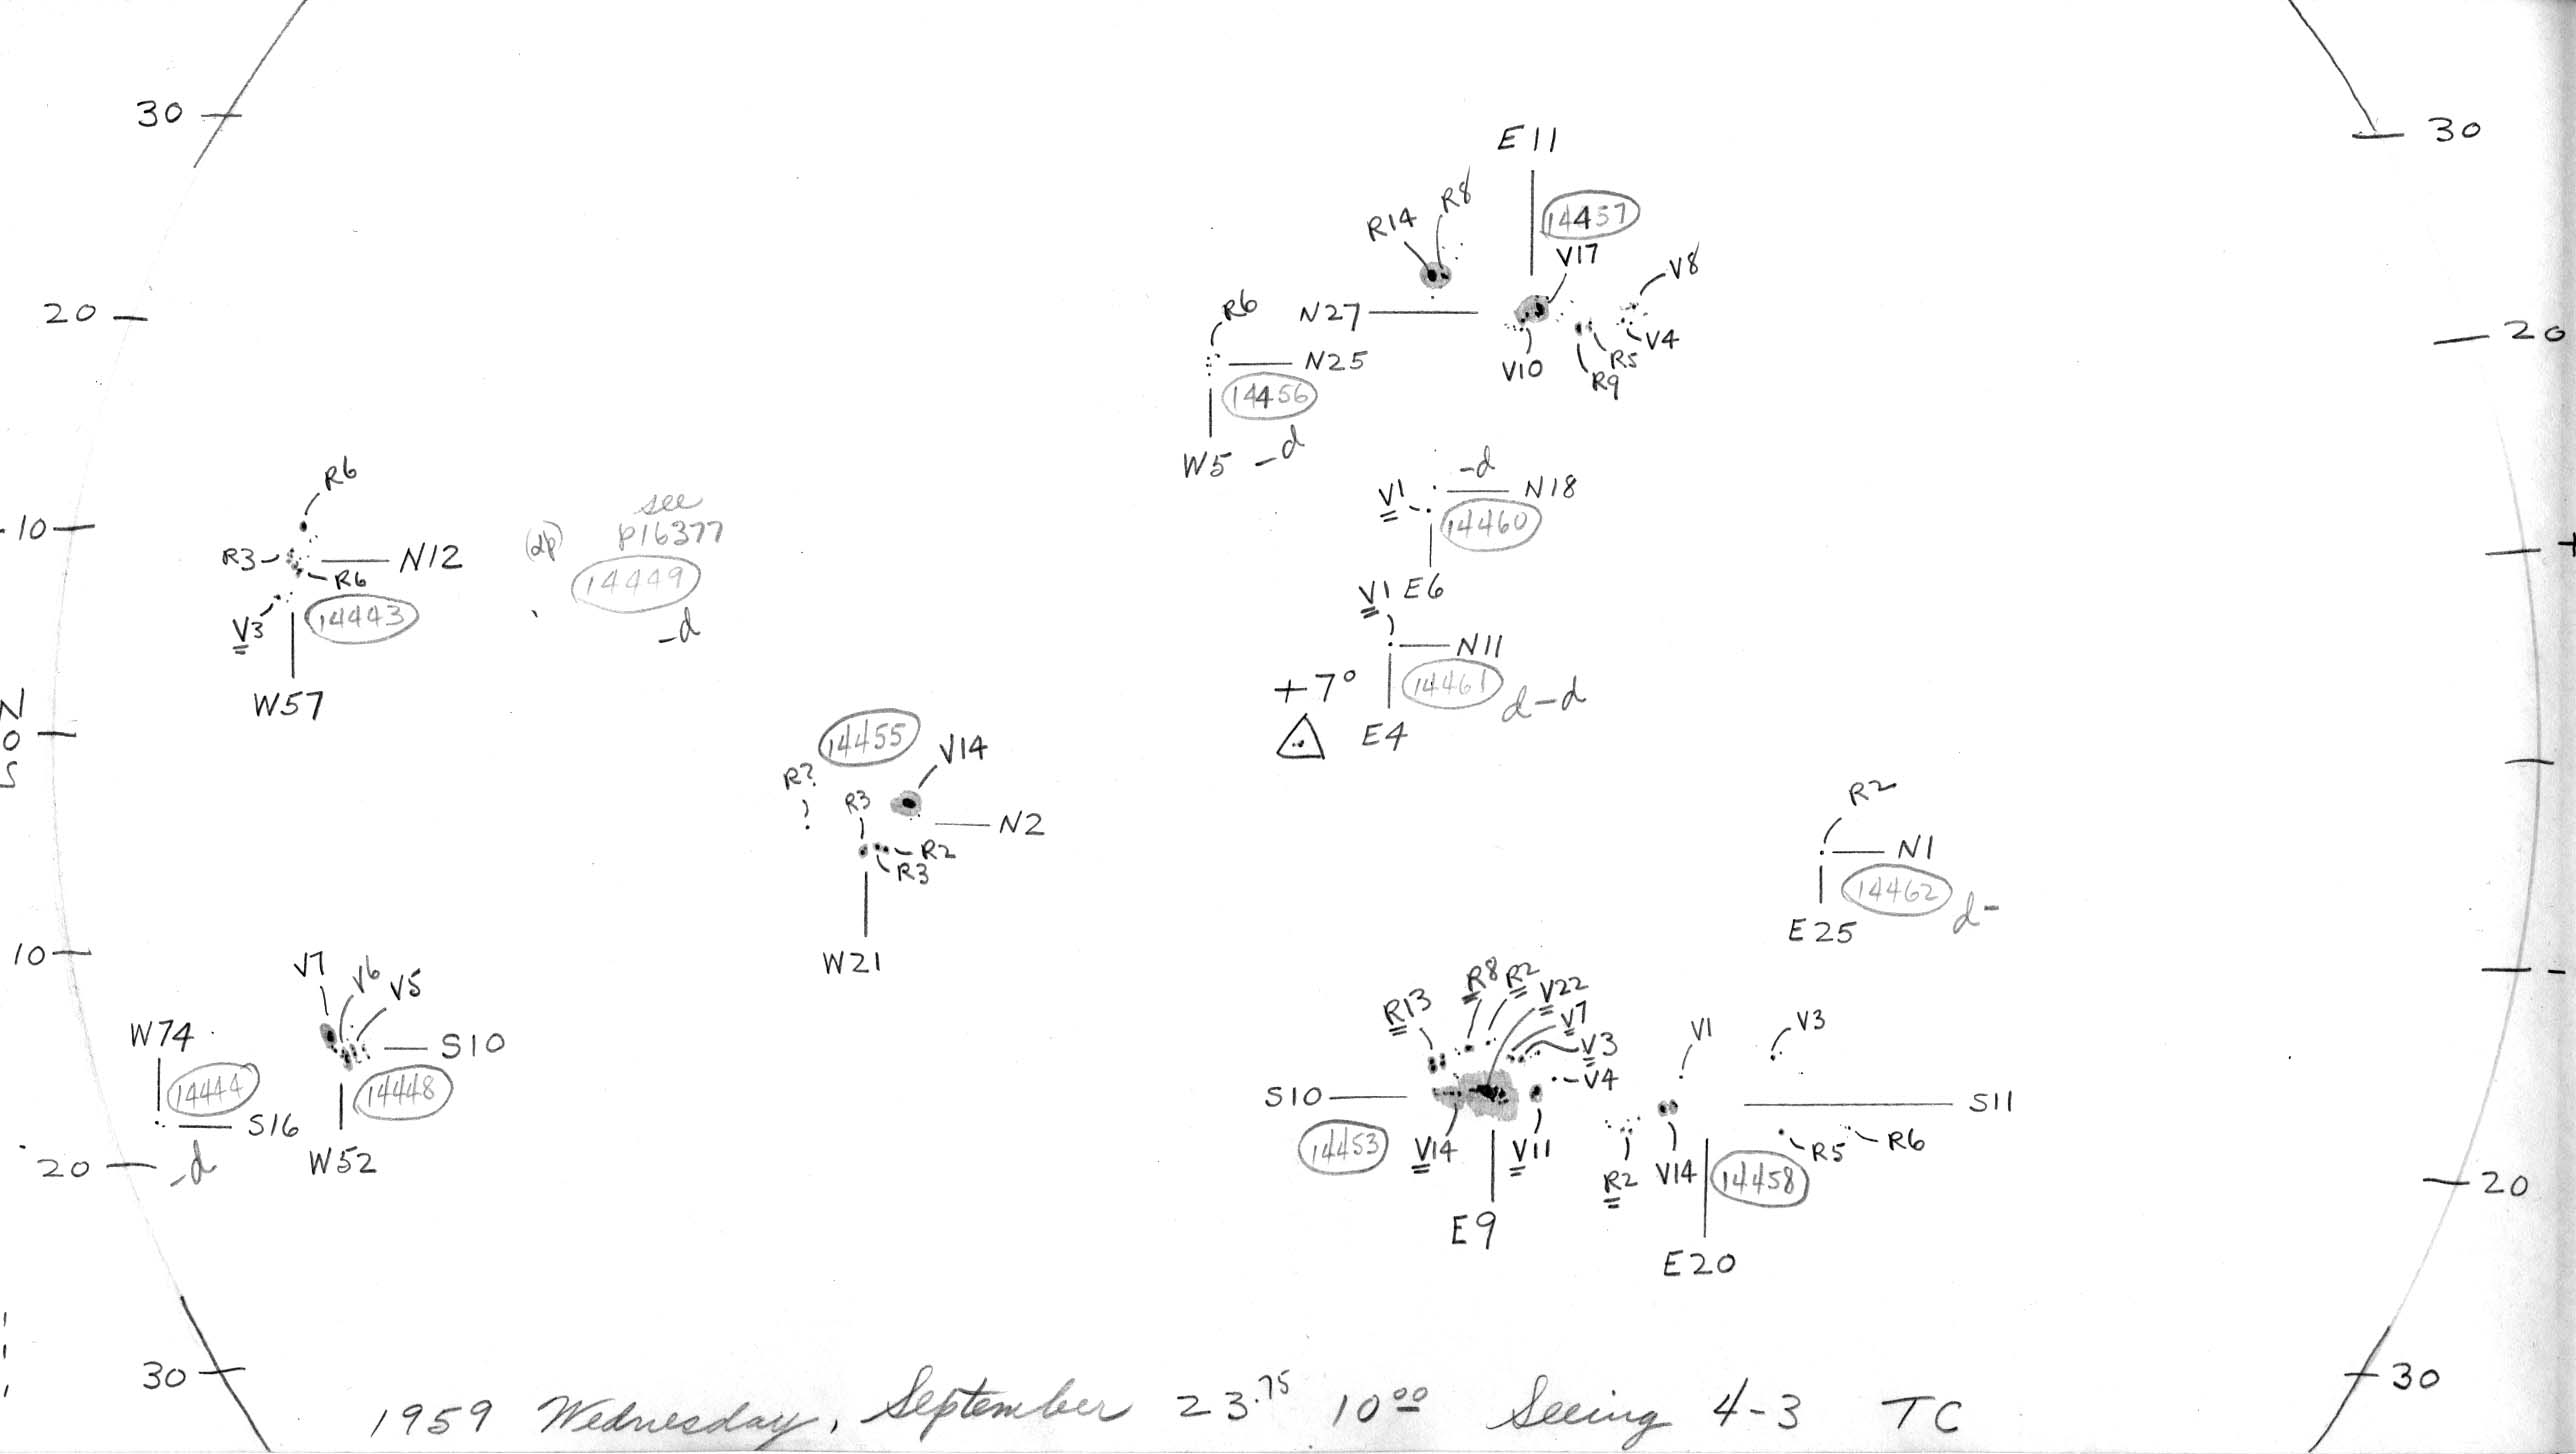 30
30
E11
14457
R14 R8
V17
V8
20
R6
N27
20
V4
V10
R5
R9
N25
14456
W5 -d
R6
-10
R3
N12
R6
14443
V3
W57
(dp)
see
p16377
14449
-d
-d
V1
N18
14460
E6
V1
N11
+7°
14461
d-d
E4
+
N
0
S
14455
V14
R?
R3
N2
R2
R3
W21
R2
N1
14462
d-
E25
10
-
V7 V6 V5
W74
S10
14444
14448
S16
-d
W52
20
R13 R8 R2 V22
V7
V3
V4
S10
14453
V14
V11
E9
V1
V3
S11
R5
R6
R2
V14
14458
E20
20
30
30
1959 Wednesday, September 23.75 10 00 Seeing 4-3 TC